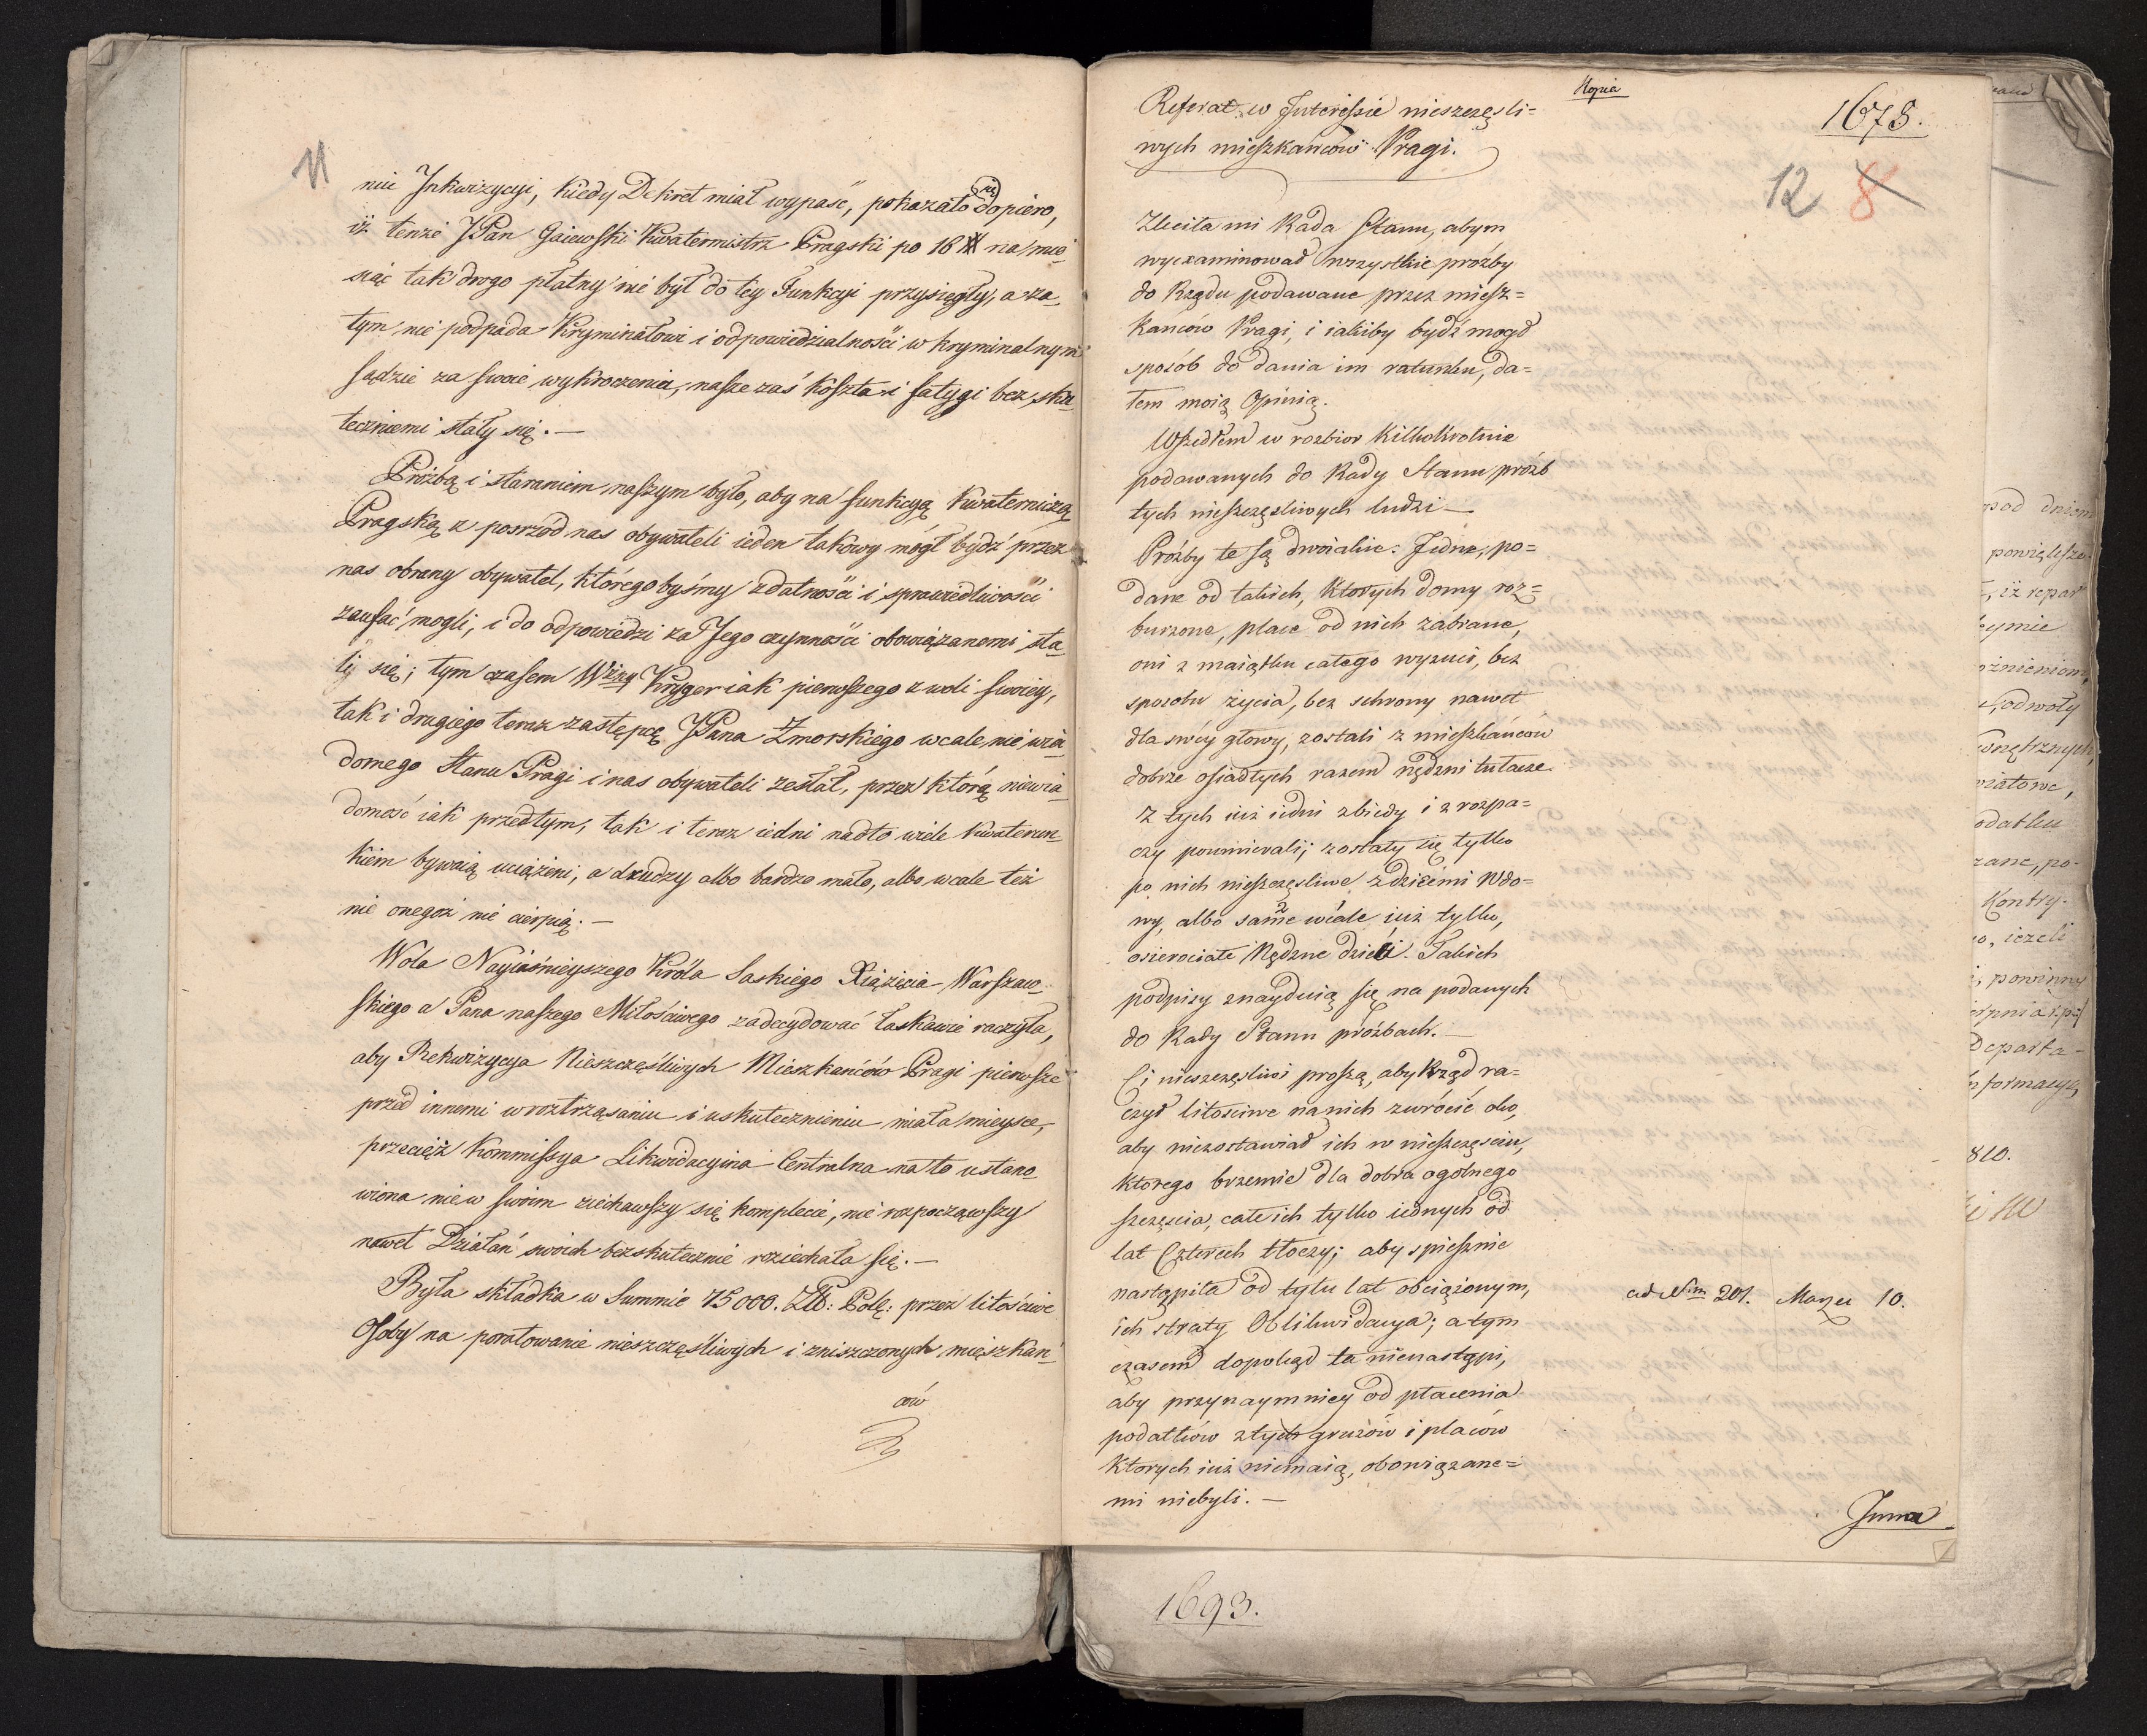 11
nie Inkwizycyi, kiedy Dekret miał wypaść, pokazało się dopiero,
iż tenże JPan Gaiewski Kwatermistrz Pragski po 16 # na mie-
siąc tak drogo płatny nie był do tey Funkcyi przysięgły, a za-
tym nie podpada Kryminałowi i odpowiedzialności w kryminalnym
sądzie za swoie wykroczenia, nasze zaś koszta i fatygi bez sku-
tecznemi stały się. —
Prożbą i staraniem naszym było, aby na funkcyą kwaterniczą
Pragską z posrzód nas obywateli ieden takowy mógł bydź przez
nas obrany obywatel, którego byśmy zdatności i sprawiedliwości
zaufać mogli, i do odpowiedzi za Jego czynności obowiązanemi sta-
li się; tym czasem Wżny Kryger iak pierwszego z woli swoiey,
tak i drugiego teraz zastępcę JPana Zmorskiego wcale nie wia-
domego Stanu Pragi i nas obywateli zesłał, przez którą niewia-
domość iak przedtym, tak i teraz iedni nadto wiele kwaterun-
kiem bywaią uciążeni, a drudzy albo bardzo mało, albo wcale też
nic onegoż nie cierpią. —
Wola Nayiaśnieyszego Króla Saskiego Xiążęcia Warszaw-
skiego a Pana naszego Miłościwego zadecydować łaskawie raczyła,
aby Rekwizycya Nieszczęśliwych Mieszkańców Pragi pierwsze
przed innemi w roztrząsaniu i uskutecznieniu miała mieysce,
przecięż Kommissya Likwidacyina Centralna na to ustano-
wiona nie w swoim ziechawszy się komplecie, nie rozpocząwszy
nawet Działań swoich bezskutecznie roziechała się. —
Była składka w Summie 75000. Złł: Polł: przez litościwe
Osoby na poratowanie nieszczęśliwych i zniszczonych mieszkań-
ców
Kopia
1678.
12 8
Referat w Interessie nieszczęsli=
wych mieszkańców Pragi.
Zleciła mi Rada Stanu, abym
wyexaminował wszystkie próźby
do Rządu podawane przez miesz=
kanców Pragi, i iakiby bydź mogł
sposób do dania im ratunku, da=
łem moią Opinią.
Wszedłem w rozbior kilkokrotnie
podawanych do Rady Stanu próźb
tych nieszczęsliwych ludzi —
Próźby te są dwoiakie: Jedne, po=
dane od takich, ktorych domy roz=
burzone, place od nich zabrane,
oni z maiątku całego wyzuci, bez
sposobu życia, bez schrony nawet
dla swéy głowy, zostali z mieszkańców
dobrze osiadłych razem nędzni tułacze.
Z tych iuż iedni z biedy i z rozpa=
czy poumierali; zostały się tylko
po nich nieszczęsliwe z dziećmi Wdo=
wy, albo same wcale iuż tylko,
osierociałe Nędzne dzieci. Takich
podpisy znayduią się na podanych
do Rady Stanu próźbach. —
Ci nieszczęsliwi proszą, aby Rząd ra=
czył litosciwe na nich zwrócić oko,
aby niezostawiał ich w nieszczęsciu,
ktorego brzemie dla dobra ogólnego
szczęscia, całe ich tylko iednych od
lat Czterech tłoczy; aby spiesznie
nastąpiła od tylu lat obciążonym,
ich straty Oblikwidacya; a tym
czasem dopokąd ta nienastąpi,
aby przynaymniey od płacenia
podatków z tych gruzów i placów
ktorych iuż niemaią, obowiązane=
mi niebyli. —
ad Nrm 201. Marza 10.
Inne
1693.
pod dniem
powiększe
, iż repar
odwoły
wnętrznych,
wiatowe,
odatku
zane, po-
Kontry-
o, ieżeli
, powinny
Departa-
nformacyą
810.